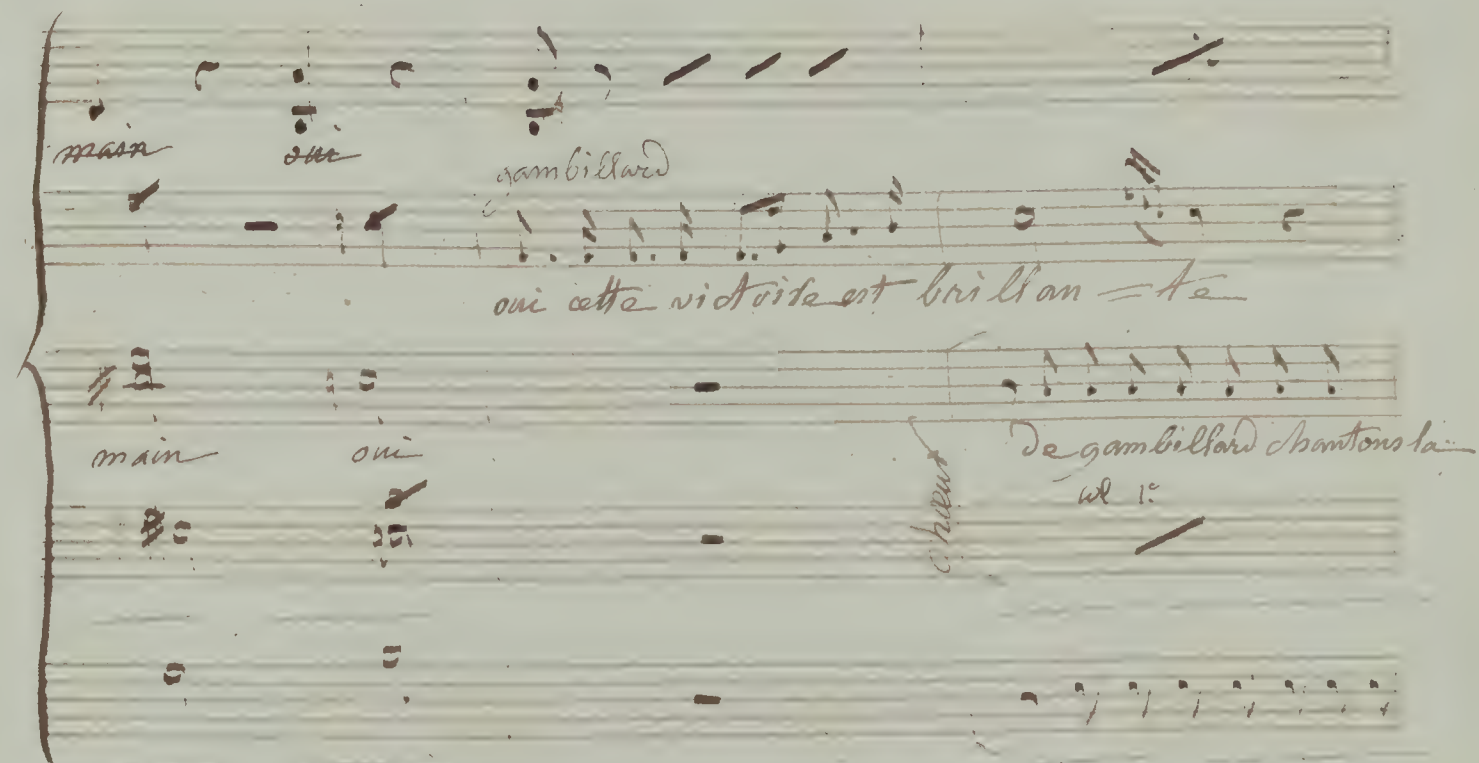 main oui
gambillard
oui cette victoire est brillan = te
main oui
chœur
De gambillard chantons la